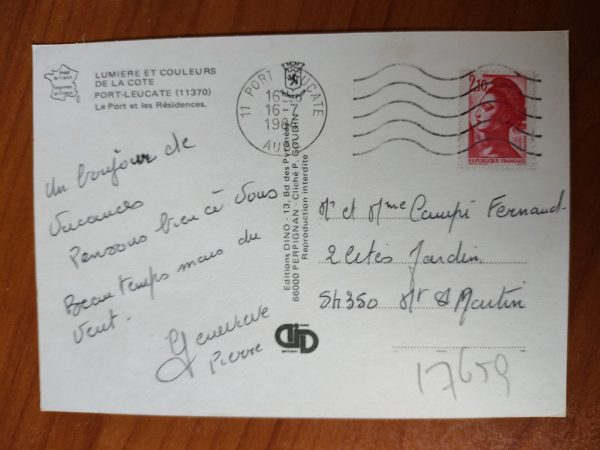 LUMIERE ET COULEURS
DE LA COTE
PORT-LEUCATE (11370)
Le Port et les Résidences.
11 PORT LEUCATE
16-7
AUDE
2,10
REPUBLIQUE FRANÇAISE
Un bonjour de
vacances
Pensons bien à vous
Beau temps mais du
vent.
Geneviève
Pierre
Editions DINO - 13, Bd des Pyrénées
66000 PERPIGNAN - Cliché P. GOUBIN
Reproduction interdite
Mr et Mme Campé Fernand
2 Cités Jardin
54350 Mt St Martin
17659